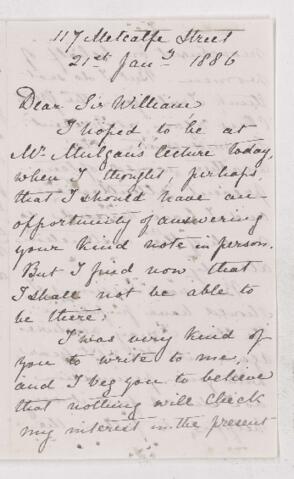 117 Metcalfe Street
21st Jany 1886
Dear Sir William
I hoped to be at
Mr Mulgan's lecture today,
when I thought, perhaps,
that I should have an
opportunity of answering
your kind note in person.
But I find now that
I shall not be able to
be there.
I was very kind of
you to write to me,
and I beg you to believe
that nothing will check
my interest in the present